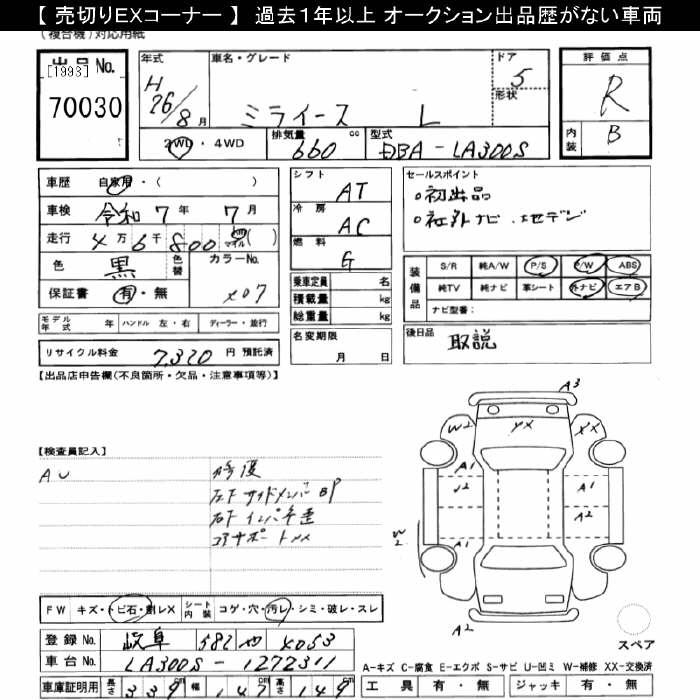 【 売切りEXコーナー 】 過去１年以上 オークション出品歴がない車両
(複合機)対応用紙
出品No.
[1993]
70030
年式 H 26/8 月
車名・グレード ミライース L
ドア 5
形状
評価点 R
内装 B
2WD・4WD
排気量 660 cc
型式 DBA-LA300S
車歴 自家用・( )
車検 令和7年 7月
走行 4万6千800 km マイル ( )
色 黒 色替 カラーNo.
保証書 有・無 X07
モデル年式 年 ハンドル 左・右 ディーラー・並行
リサイクル料金 7,320 円 預託済
シフト AT
冷房 AC
燃料 G
乗車定員 名
積載量 kg
総重量 kg
名変期限 月 日
セールスポイント
○初出品
○社外ナビ・地デジ
装備品
S/R 純A/W P/S P/W ABS
純TV 純ナビ 革シート 外ナビ エアB
ナビ型番:
後日品 取説
【出品店申告欄(不良箇所・欠品・注意事項等)】
【検査員記入】
AU
修復
左F サイドメンバ BP
右F インパネ歪
コアサポート XX
A3
W2 XX XX
A1 A1
A2
A1
W2
A2
スペア
FW キズ・トビ石・割レX シート内装 コゲ・穴・汚レ・シミ・破レ・スレ
登録No. 岐阜 582 4053
車台No. LA300S-1272311
車庫証明用 長さ 339 幅 147 高さ 149
A-キズ C-腐食 E-エクボ S-サビ U-凹ミ W-補修 XX-交換済
工具 有・無 ジャッキ 有・無